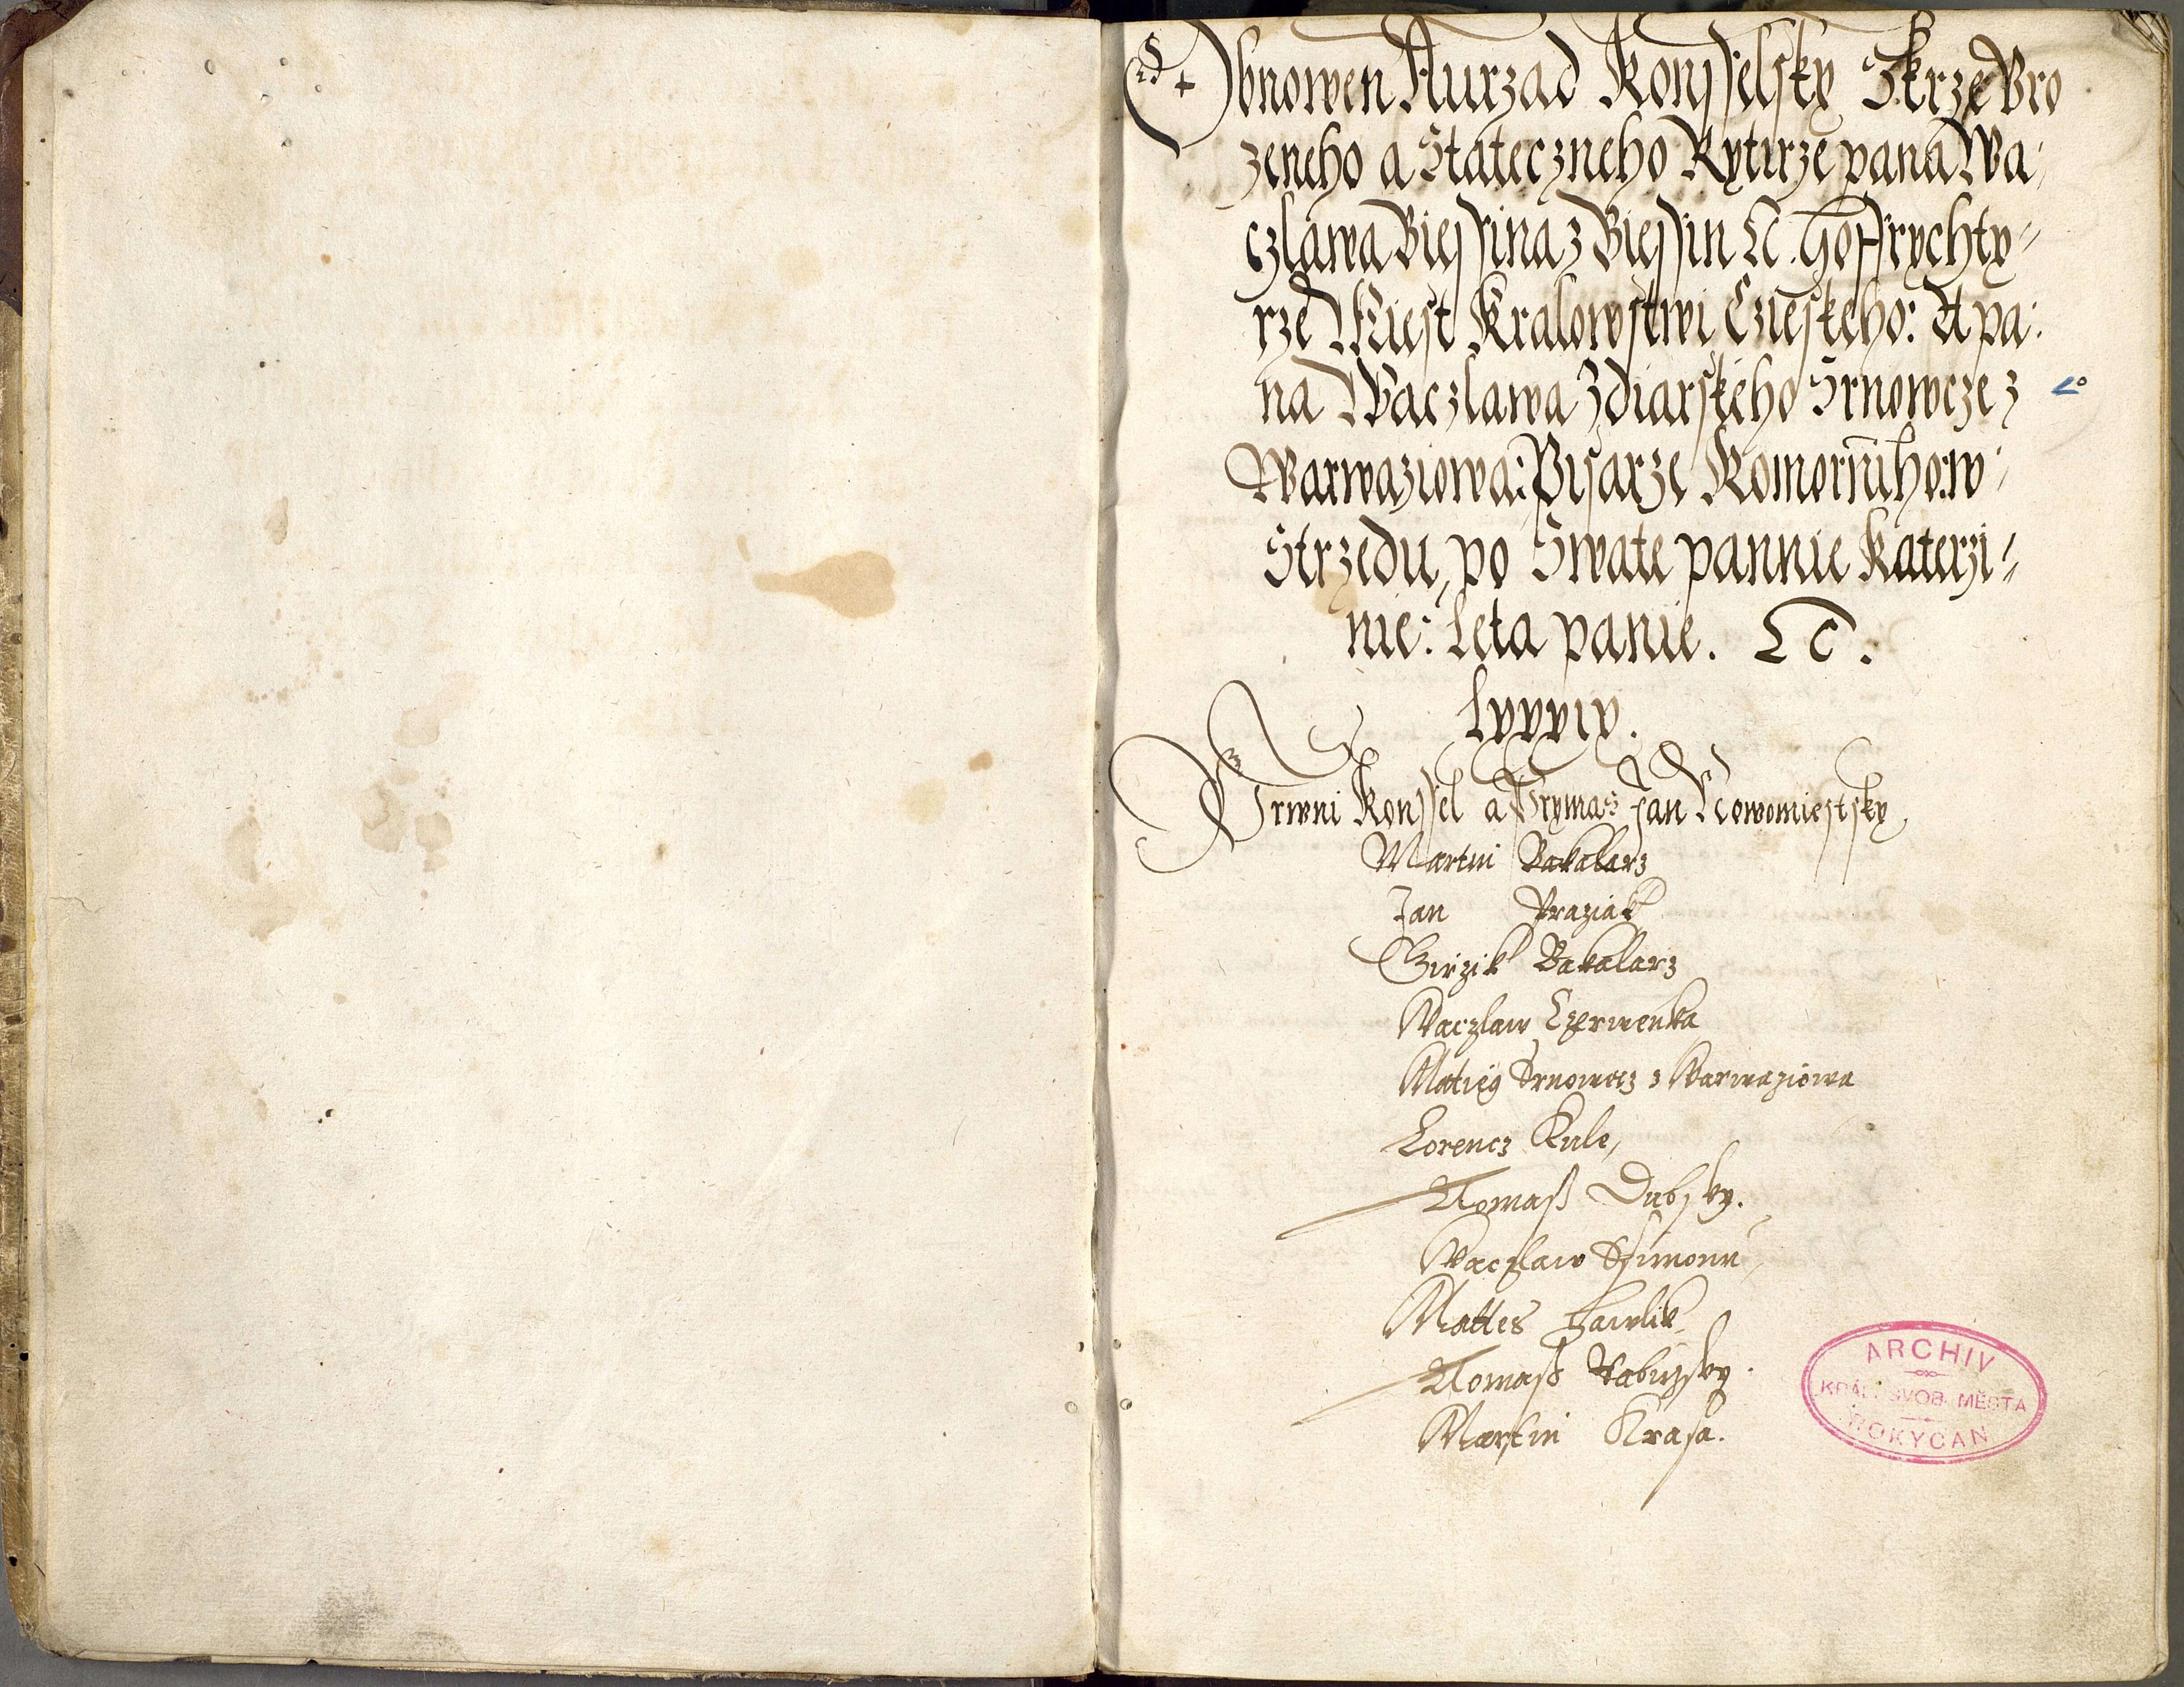 Obnowen Aurzad Konsselsky Skrze Uro
zeneho a Stateczneho Rytirze pana Wa:
czlawa Biessina z Biessin Ec. Hoffrychty=
rze Miest Kralowstwi Czieskeho: A pa:
na Waczlawa Zdiarskeho Srnowcze z
Warwaziowa: Pisarze Komorniho: w:
Strzedu, po Swate pannie Katerzi=
nie: Leta panie. Ec.
lxxxix.
Prwni Konssel a Prymas Jan Nowomiestsky
Martin Bakalarz
Jan Praziak
Girzik Bakalarz
Waczlaw Czerwenka
Matieg Srnowecz z Warwaziowa
Lorencz Kule,
Tomass Dubsky.
Waczlaw Ssimonu
Mattes Hawlik
Tomass
Martin Krasa.
ARCHIV
KRÁL. SVOB. MĚSTA
ROKYCAN